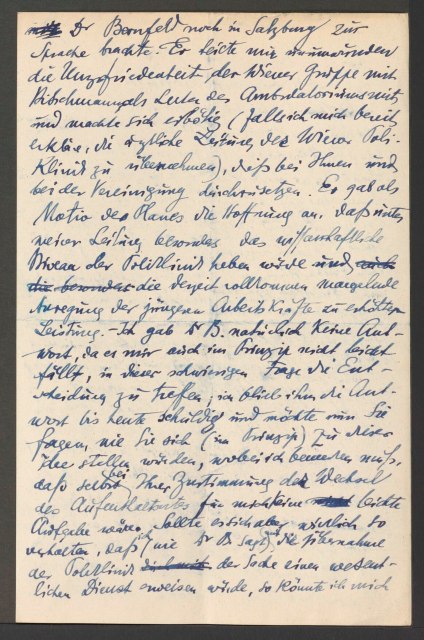 Dr Bernfeld noch in Salzburg zur
Sprache brachte. Er teilte mir unumwunden
die Unzufriedenheit der Wiener Gruppe mit
Hitschmann als Leiter des Ambulatoriums mit,
und machte sich erbötig (falls ich mich bereit
erkläre, die ärztliche Leitung der Wiener Poli-
klinik zu übernehmen), dies bei Ihnen und
bei der Vereinigung durchzusetzen. Er gab als
Motiv des Planes die Hoffnung an, daß unter
meiner Leitung besonders das wissenschaftliche
Niveau der Poliklinik heben würde und
die derzeit vollkommen mangelnde
Anregung der jüngeren Arbeitskräfte zu erhöhter
Leistung. – Ich gab Dr B. natürlich keine Ant-
wort, da es mir auch im Prinzip nicht leicht
fällt, in dieser schwierigen Frage die Ent-
scheidung zu treffen; ich blieb ihm die Ant-
wort bis heute schuldig und möchte nun Sie
fragen, wie Sie sich (im Prinzip) zu dieser
Idee stellen würden, wobei ich bemerken muß,
daß selbst bei Ihrer Zustimmung der Wechsel
des Aufenthaltsortes für mich keine leichte
Aufgabe wäre. Sollte es sich aber wirklich so
verhalten, daß (wie Dr B sagt) die Übernahme
der Poliklinik der Sache einen wesent-
lichen Dienst erweisen würde, so könnte ich mich